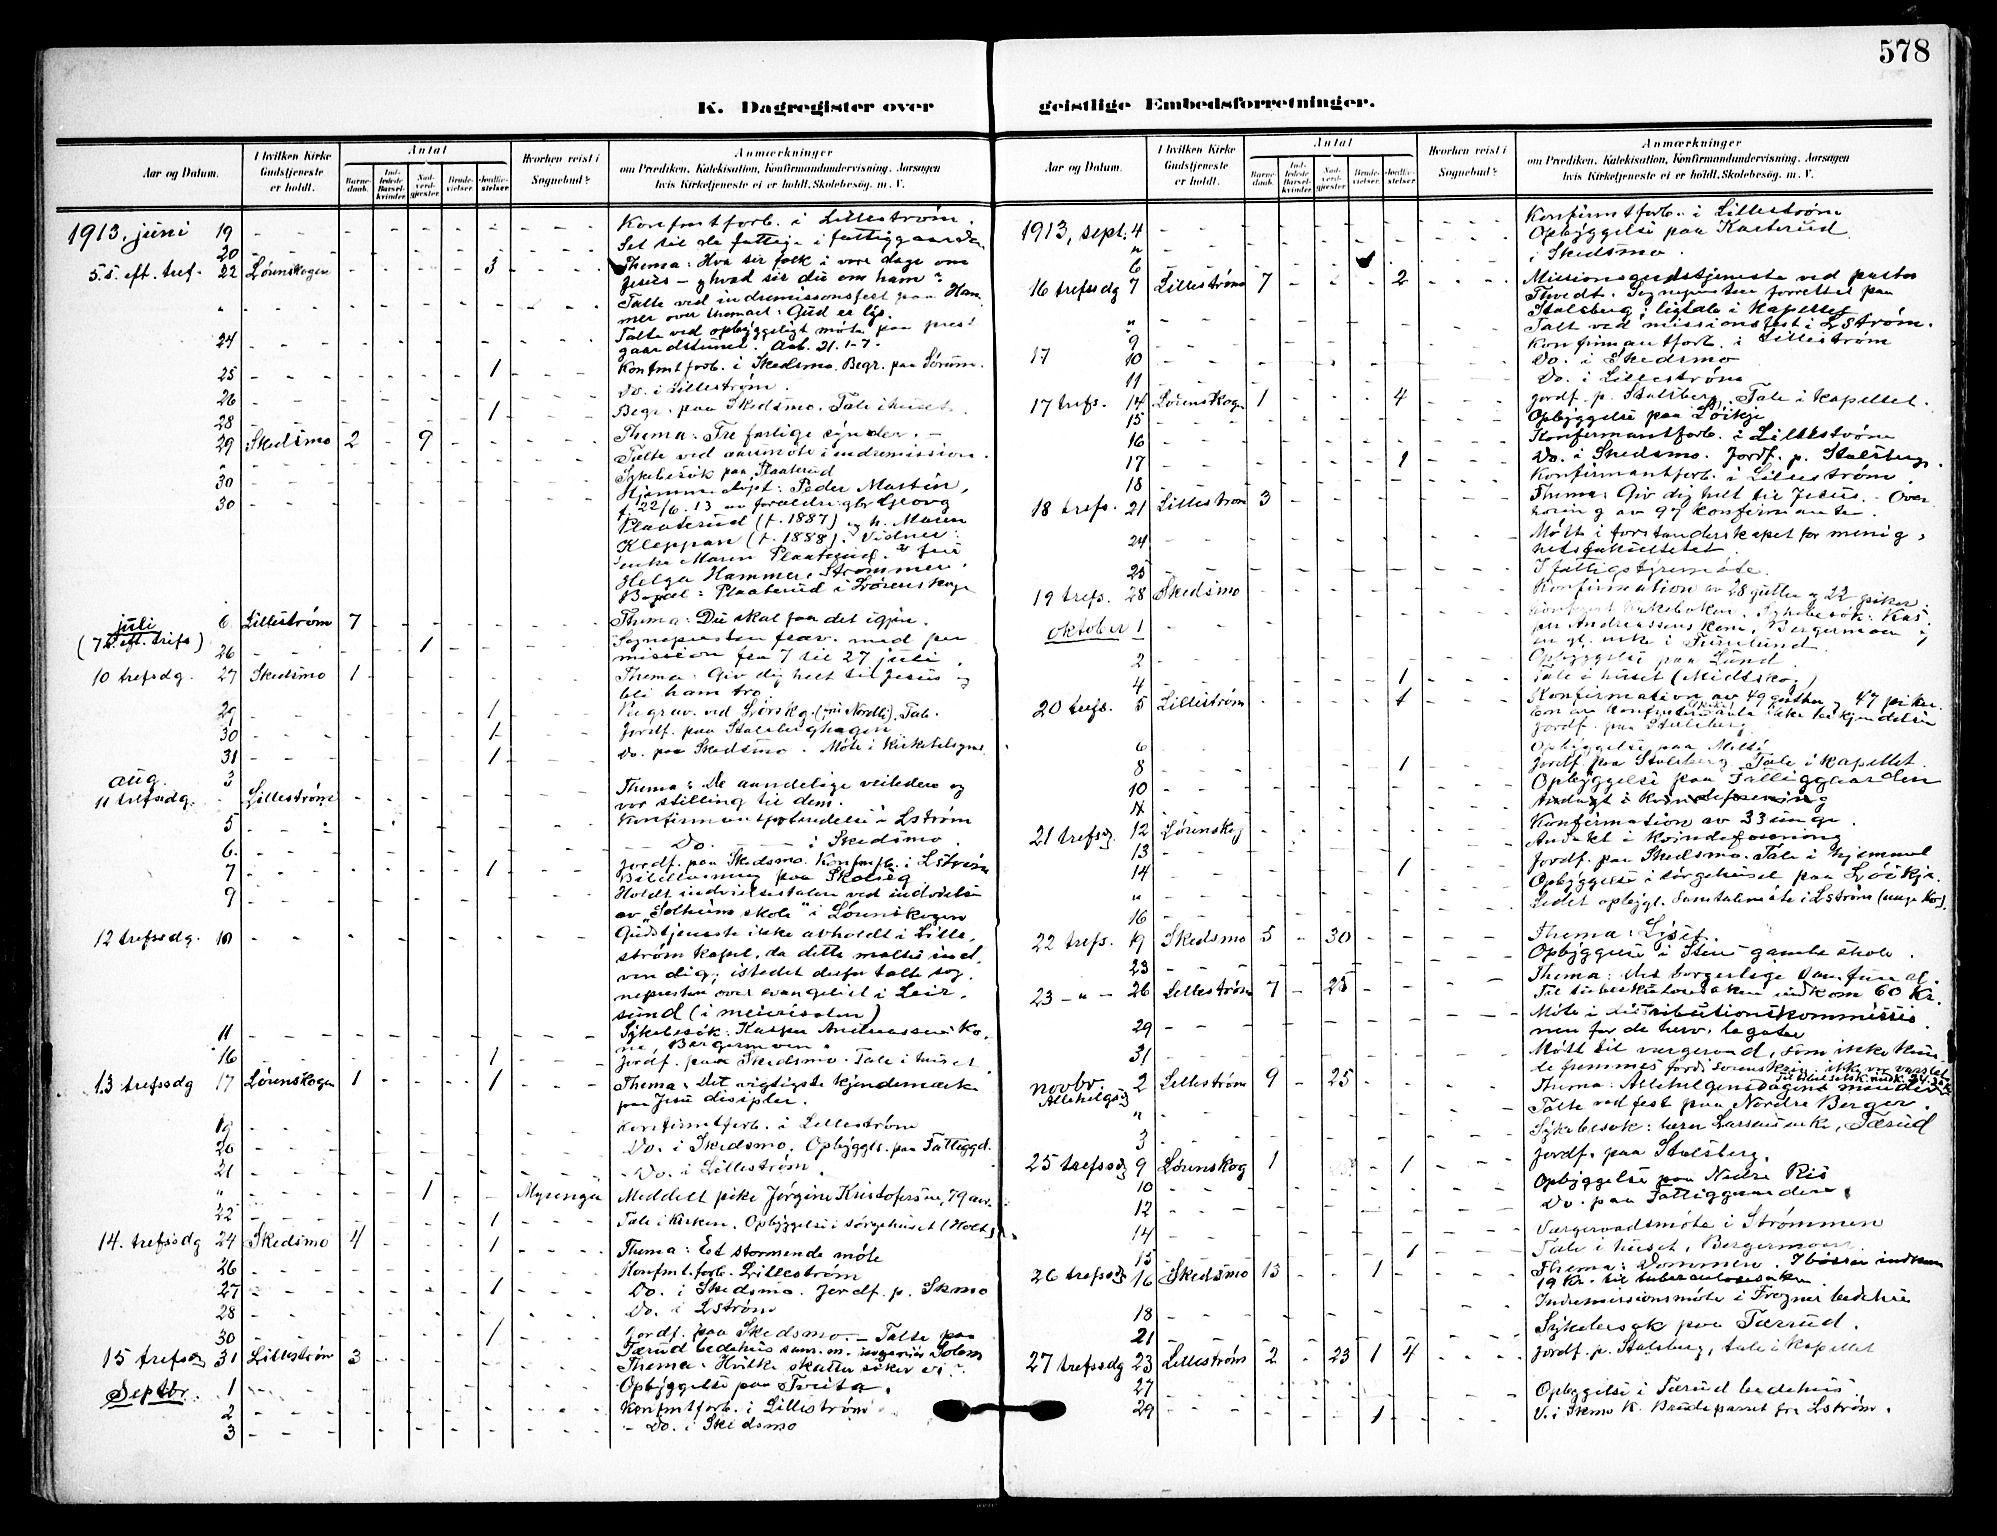 578
K. Dagregister over
geistlige Embedsforretninger.
Aar og Datum.
I hvilken Kirke Gudstjeneste er holdt.
Antal
Barnedaab.
Indledede Barselkvinder
Nadverdgjester
Brudevielser
Jordfæstelser
Hvorhen reist i Sognebud?
Anmærkninger
om Prædiken, Katekisation, Konfirmandundervisning, Aarsagen
hvis Kirketjeneste ei er holdt, Skolebesøg, m. V.
1913, juni 19 Konfmtforb. i Lillestrøm.
20 Set til de fattige i fattiggaarden
5 s. eft. tref. 22 Lørenskogen 3 Thema: Hva sir folk i vore dage om
Jesus – og hvad sir du om ham?
Talte ved indremissionsfest paa Ham
mer over themaet: Gud er lys.
24 Talte ved opbyggeligt møte paa prest
gaardstunet. Aab. 21. 1-7.
25 1 Konfmtforb. i Skedsmo. Begr. paa Sørum.
26 Do. i Lillestrøm.
28 1 Begr. paa Skedsmo. Tale i huset.
29 Skedsmo 2 9 Thema: Tre farlige synder.
" Talte ved aarsmøte i indremission.
30 Sykebesøk paa Plaaterud
30 Hjemmedøpt: Peder Martin,
f. 22/6 13 av forældre gbr Georg
Plaaterud (f. 1887) og h. Maren
Kleppan (f. 1888). Vidner:
enke Maren Plaaterud, fru
Helga Hammer, Strømmen.
Bopæl: Plaaterud i Lørenskogen
juli 6 Lillestrøm 7 Thema: Du skal faa det igjen.
(7 s. eft. trefs) 26 1 Sognepresten frav. med per
mission fra 7 til 27 juli.
10 trefsdg. 27 Skedsmo 1 Thema: Giv dig helt til Jesus og
bli ham tro.
29 1 Begrav. ved Lørskg. (fru Nordli). Tale.
30 1 Jordf. paa Stalsberghagen
31 1 Do. paa Skedsmo. Møte i Kirketilsynet
aug. 3 Thema: De aandelige veiledere og
11 trefsdg. Lillestrøm vor stilling til dem.
5 Konfirmantforberedelse i Lstrøm
6. Do. i Skedsmo.
7 1 Jordf. paa Skedsmo. Konfmfb. i Lstrøm
Bibellæsning paa Skoleg
9 Holdt indvielsestalen ved indvielse
av "Solheim skole" i Lørenskogen
12 trefsdg. 10 Gudstjeneste ikke avholdt i Lille-
strøm kapel, da dette maltes ind-
vendig; istedet derfor talte sog-
nepresten over evangeliet i Leir-
sund (i meierisalen)
11 Sykebesøk: Kasper Andreassens Ko-
ne, Bergermoen.
16 1 Jordf. paa Skedsmo. Tale i huset.
13 trefsdg 17 Lørenskogen 1 1 Thema: Det vigtigste kjendemærke
paa Jesu disipler.
19 Konfirmtforb. i Lillestrøm
20 Do. i Skedsmo. Opbyggls. paa Fattiggd.
21 Do. i Lillestrøm.
" 1 Myrengen Meddelt pike Jørgine Kristofersen, 79 aar.
22 1 Tale i Kirken. Opbyggelse i sørgehuset (Holt)
14. trefsdg 24 Skedsmo 4 1 Thema: Et stormende møte
26 Konfmt.forb. Lillestrøm
27 1 Do. i Skedsmo. Jordf. p. Skmo
28 Do. i Lstrøm
30 1 Jordf. paa Skedsmo. – Talte paa
Færud bedehus
15 trefsdg 31 Lillestrøm 3 Thema: Hvilke skatter søker vi?
Septbr. 1 Opbyggelse paa Tveita.
2 Konfmtforb. i Lillestrøm
3 Do. i Skedsmo
1913, sept. 4 Konfirmtforb. i Lillestrøm
" Opbyggelse paa Kasterud
6 i Skedsmo.
16 trefsdg 7 Lillestrøm 7 2 Missionsgudstjeneste ved pastor
Thvedt. Sognepresten forrettet paa
Stalsberg; ligtale i Kapellet
" Talt ved missionsfest i Lstrøm.
9 Konfirmantforb. i Lillestrøm
17 10 Do. i Skedsmo
11 Do. i Lillestrøm
17 trefs. 14 Lørenskogen 1 4 Jordf. p. Stalsberg. Tale i kapellet.
15 Opbyggelse paa Løikje
16 Konfirmantforb. i Lillestrøm
17 1 Do. i Skedsmo. Jordf. p. Stalsberg.
18 Konfirmantforb. i Lillestrøm.
18 trefs. 21 Lillestrøm 3 Thema: Giv dig helt til Jesus. – Over
høring av 97 konfirmanter.
24 Møtt i forstanderskapet for menig-
hetsfakultetet.
25 I fattigstyremøte.
19 trefs. 28 Skedsmo Konfirmation av 28 gutter og 22 piker,
oktober 1 Sykebesøk: Kas-
per Andreassens kone, Bergermoen og
en gl. enke i Furulund.
2 Opbyggelse paa Lund.
4 1 Tale i huset (Midtskog)
20 trefs. 5 Lillestrøm 1 Konfirmation av 49 gutter og 47 piker.
Jordf. paa Stalsberg
6 Opbyggelse paa Melli
8 1 Jordf. paa Stalsberg. Tale i kapellet.
10 Opbyggelse paa Fattiggaarden
11 Andagt i kvindeforening
21 trefsdg 12 Lørenskog Konfirmation av 33 unge.
13 Andakt i kvindeforening
14 1 Jordf. paa Skedsmo. Tale i hjemmet
" Opbyggelse i sørgehuset paa Løikje.
16 Ledet opbygl. Samtalemøte i Lstrøm (unge Kor).
22 trefs. 19 Skedsmo 5 30 Thema: Liset.
23 Opbyggelse i Sten gamle skole.
23 – " – 26 Lillestrøm 7 25 Thema:
Til tuberkulosesaken indkom 60 Kr.
29 Møte i distributionskommissio
nen for de herv. legater
31 Møtt til vergeraad, som ikke kun-
de fremmes fordi
novbr. 2 Lillestrøm 9 25 Thema: Allehelgensdagens
Allehelgsdg " Talte ved fest paa Nordre Berger.
3 Sykebesøk: Færud
25 trefsdg 9 Lørenskog 1 1 Jordf. paa Stalsberg.
10 Opbyggelse paa Nedre Ris
12 Do. paa Fattiggaarden.
14 Værgeraadsmøte i Strømmen
15 1 Tale i huset, Bergermoen.
26 trefsdg 16 Skedsmo 13 1 Thema: Dommen. I bøssen indkom
19 Kr. til tuberculosesaken.
18 Indremissionsmøte i Frogner bedehus
21 Sykebesøk paa Færud.
27 trefsdg 23 Lillestrøm 2 23 1 4 Jordf. p. Stalsberg, tale i kapellet
27 Opbyggelse i Færud bedehus.
29 1 V. i Skmo K. Brudeparret fra Lstrøm.